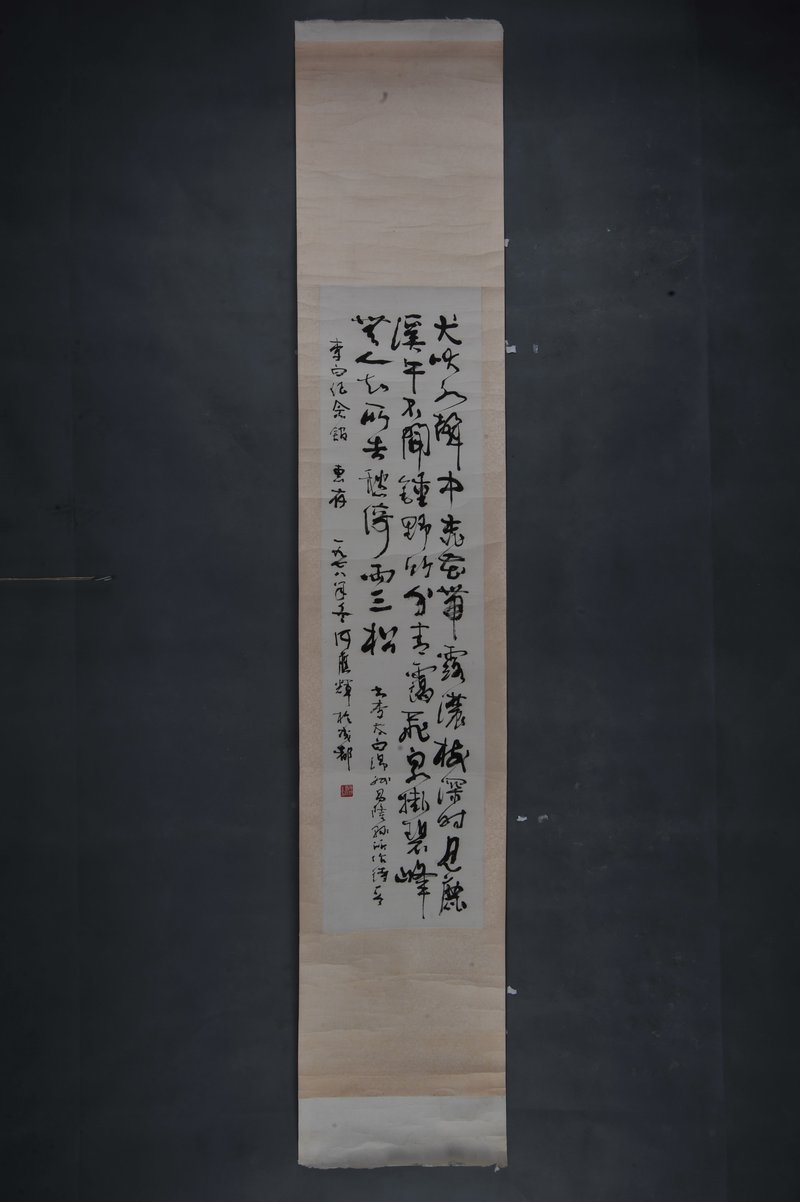 犬吠水聲中桃花帶露濃树深时見鹿
溪午不聞鍾野竹分青靄飛泉掛碧峰
無人知所去愁倚兩三松
书李太白昌隆縣所作詩
李白纪念館 惠存 一九七八年冬何應輝於成都